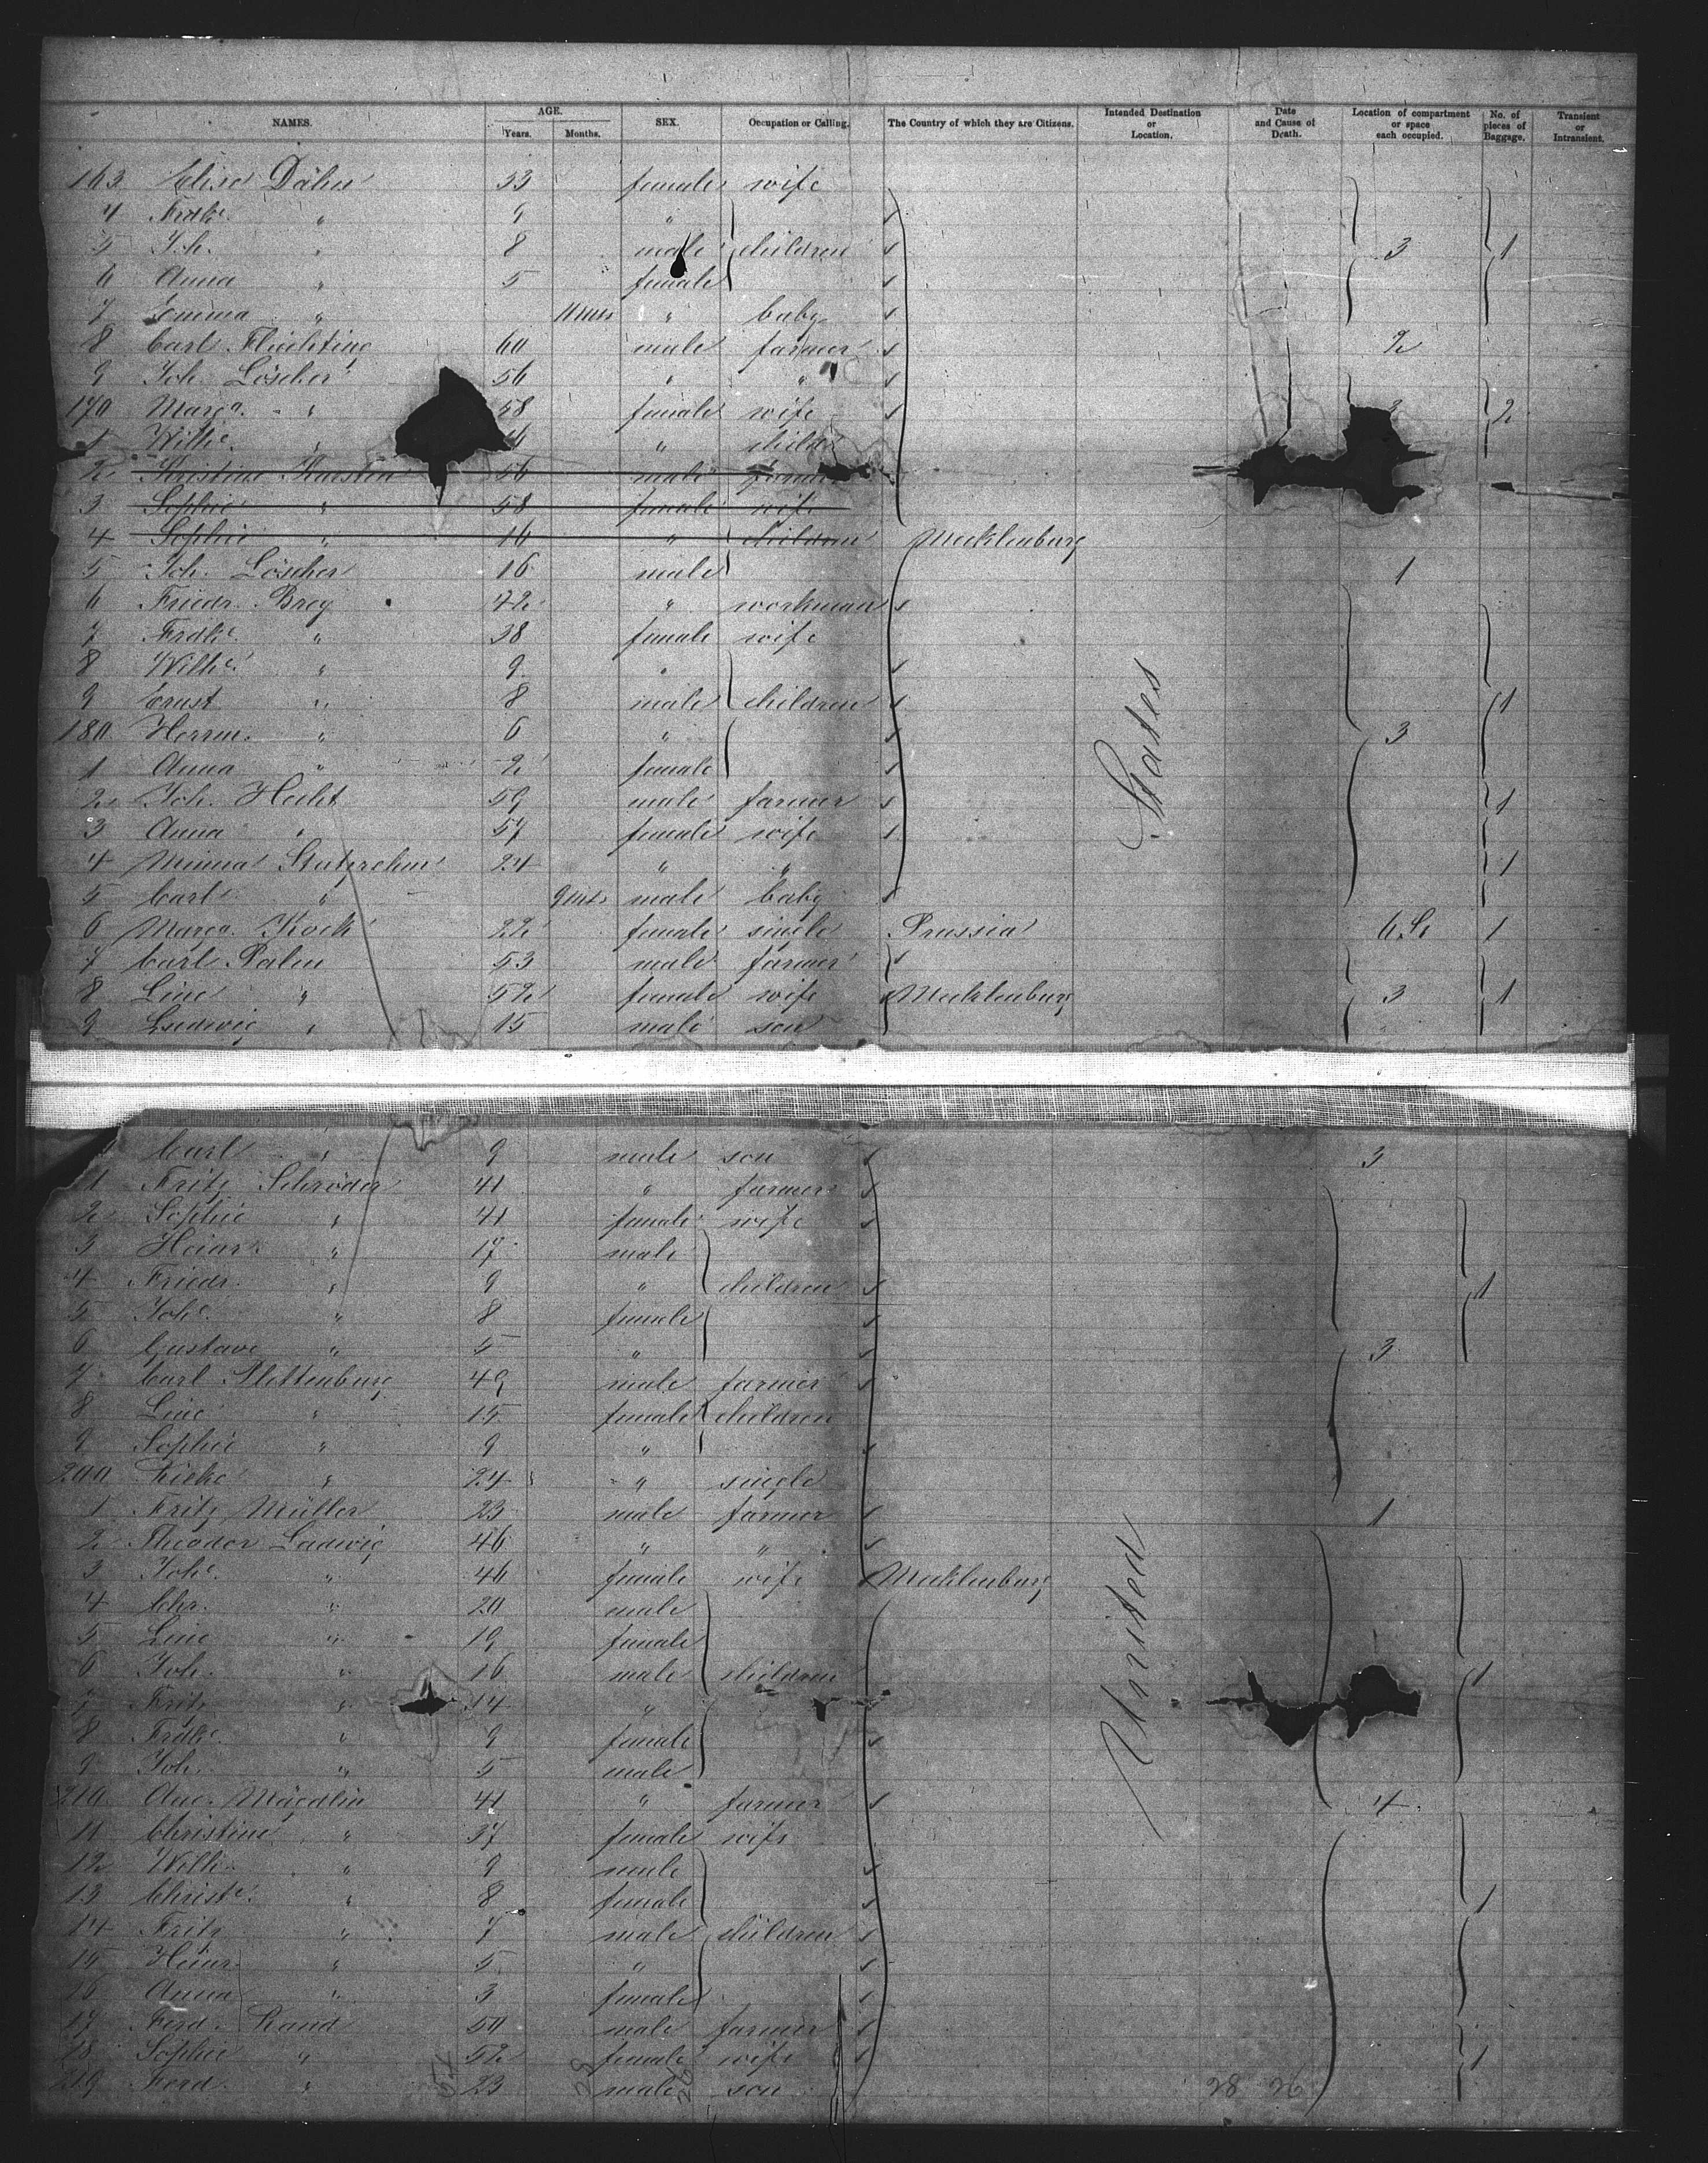 NAMES. AGE. Years. Months. SEX. Occupation or Calling. The Country of which they are Citizens. Intended Destination or Location. Date and Cause of Death. Location of compartment or space each occupied. No. of pieces of Baggage. Transient or Intransient.
163 Elise Dälen 33 female wife
4 Frdke. " 9 "
5 Joh. " 8 male children 3 1
6 Anna " 5 female
7 Emma " 11 mts " baby
8 Carl Flüchting 60 male farmer 2
9 Joh. Löscher 56 " "
170 Marga. " 58 female wife 2
1 Wilhe. " " child
2 Christine Karsten 56 male farmer
3 Sophie " 58 female wife
4 Sophie " 16 " children Mecklenburg
5 Joh. Löscher 16 male 1
6 Friedr. Brey 42 " workman
7 Frdke. " 38 female wife
8 Wilhe. " 9 "
9 Ernst " 8 male children 1
180 Herm. " 6 " 3
1 Anna " 2 female
2 Joh. Hecht 59 male farmer 1
3 Anna " 57 female wife
4 Minna 24 " " 1
5 Carl " 9 mts male baby
6 Marga. Koch 22 female single Prussia 6 St 1
7 Carl Palen 53 male farmer
8 Line " 52 female wife Mecklenburg 3 1
9 Ludwig " 15 male son
States
Carl " 9 male son 3
1 Fritz Schröder 41 " farmer
2 Sophie " 41 female wife
3 Heinr. " 17 male
4 Friedr. " 9 " children 1
5 Johe. " 8 female
6 Gustave " 5 " 3
7 Carl Plettenburg 49 male farmer
8 Line " 15 female children
9 Sophie " 9 "
200 Rieke " 24 " single
1 Fritz Müller 23 male farmer 1
2 Theodor Ladwig 46 " "
3 Johe. " 46 female wife Mecklenburg
4 Chr. " 20 male
5 Line " 19 female
6 Joh. " 16 male children 1
7 Fritz " 14 "
8 Frdke. " 9 female
9 Joh. " 5 male
210 Aug. Mägdlin 41 " farmer 4
11 Christine " 37 female wife
12 Wilh. " 9 male
13 Christe. " 8 female 1
14 Fritz " 7 male children
15 Heinr. " 5 "
16 Anna " 3 female
17 Ferd. Rand 50 male farmer
18 Sophie " 52 female wife 1
219 Ferd. " 23 male son 28 26
United